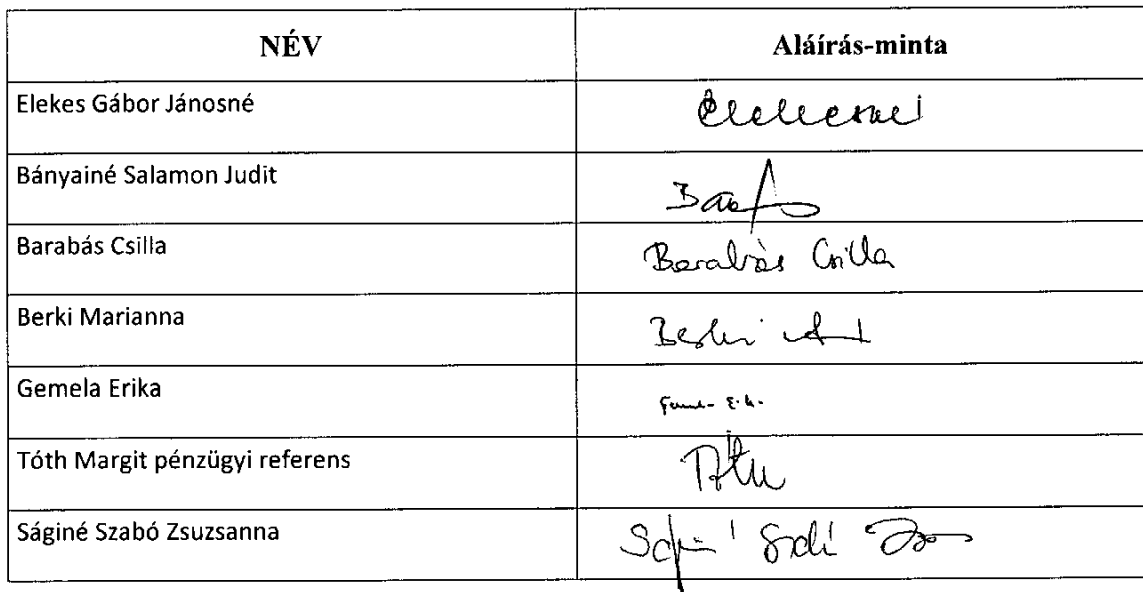 NÉV Aláírás-minta
Elekes Gábor Jánosné
Bányainé Salamon Judit
Barabás Csilla Barabás Csilla
Berki Marianna Berki
Gemela Erika
Tóth Margit pénzügyi referens Tóth
Ságiné Szabó Zsuzsanna